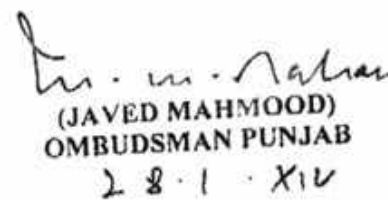 (JAVED MAHMOOD)
OMBUDSMAN PUNJAB
28.1.XIV